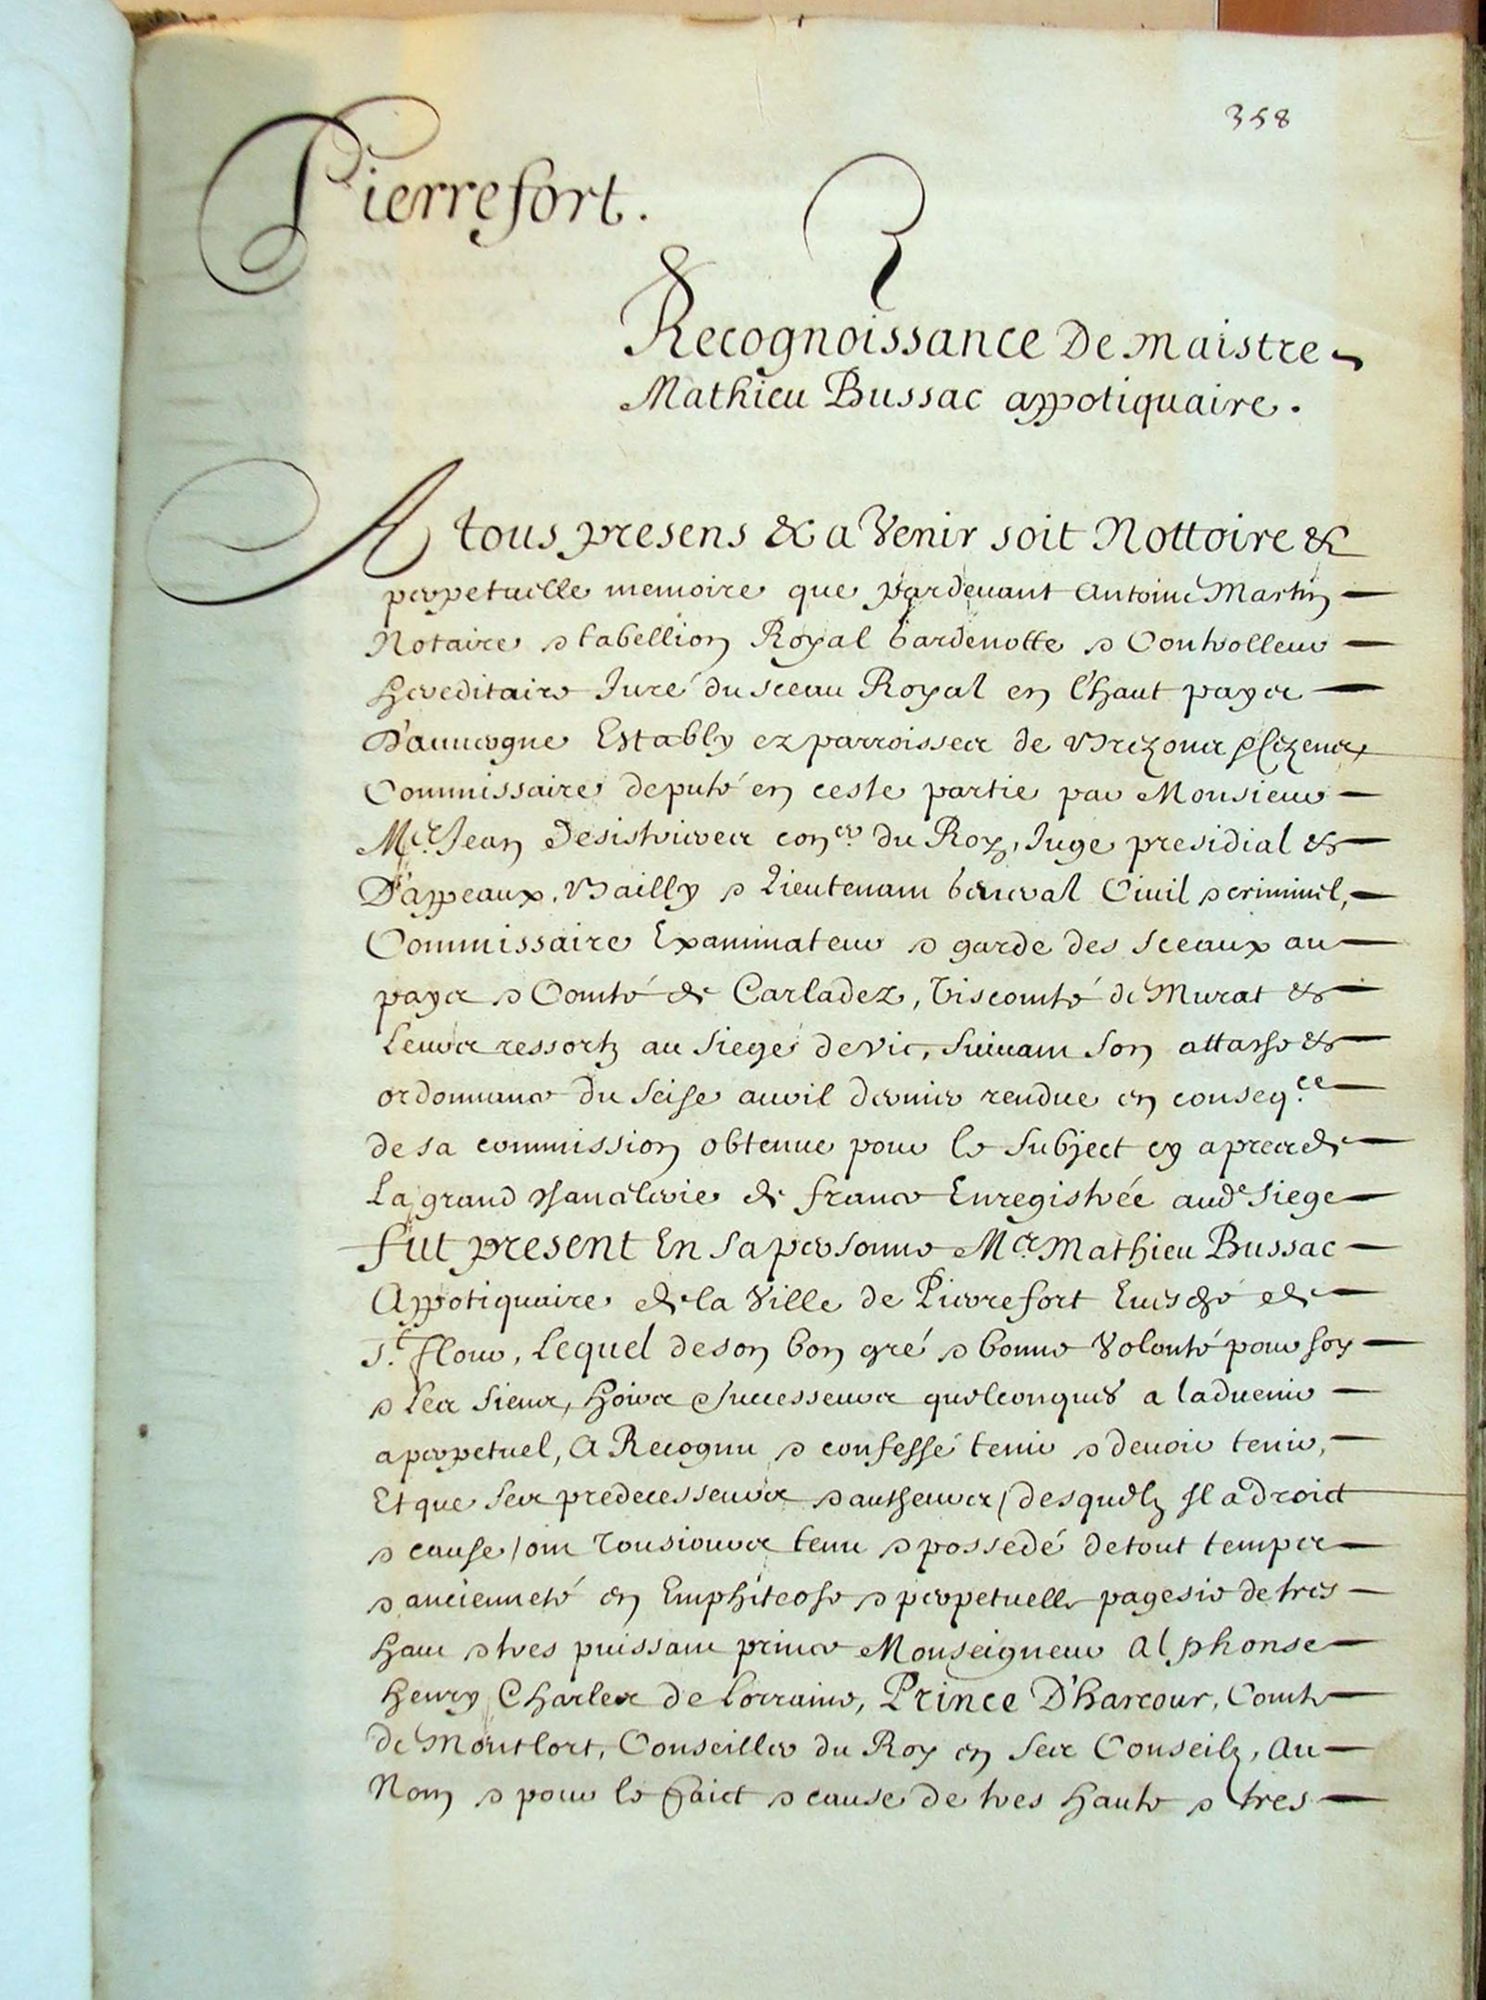 358
Pierrefort.
Recognoissance De maistre
Mathieu Bussac appotiquaire.
A tous presens & a Venir soit Nottoire &
perpetuelle memoire que pardeuant Antoine Martin
Notaire & tabellion Royal Gardenotte & Controlleur
hereditaire Juré du sceau Royal en l'haut payes
D'auuergne Estably ez parroisses de Brezons &
Commissaire deputé en ceste partie par Monsieur
Mre. Jean Desistrieres coner. du Roy, Juge presidial &
D'appeaux, Bailly & Lieutenant General Ciuil & criminel,
Commissaire Examinateur & garde des sceaux au
payes & Comté de Carladez, Viscomté de Murat &
leurs ressortz au siege de Vic, suiuant son attache &
ordonnance du seise auril dernier rendue en conseq.ce
de sa commission obtenue pour le subject cy apres de
La grand chancelerie de france Enregistrée aude siege
fut present En sa personne Mre. Mathieu Bussac
Appotiquaire de la Ville de Pierrefort Euesché de
St. flour, Lequel de son bon gré & bonne Volonté pour soy
& les siens, hoirs & successeurs quelconques a laduenir
a perpetuel, A Recognu & confessé tenir & deuoir tenir,
Et que ses predecesseurs & autheurs (desquelz Il a droict
& cause) ont Tousiours tenu & possedé de tout temps
& ancienneté en Emphiteose & perpetuelle pagesie de tres
haut & tres puissant prince Monseigneur Alphonse
Henry Charles de Lorraine, Prince D'harcour, Comte
de Montlort, Conseiller du Roy en ses Conseilz, Au
Nom & pour le faict & cause de tres haute & tres